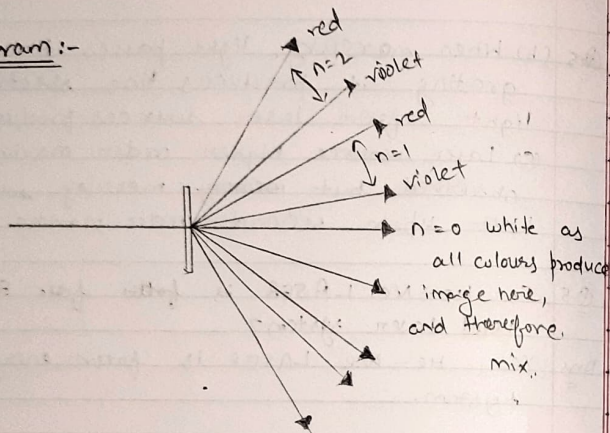 ram:-
red
n=2
violet
red
n=1
violet
n=0 white as
all colours produce
image here,
and therefore,
mix.